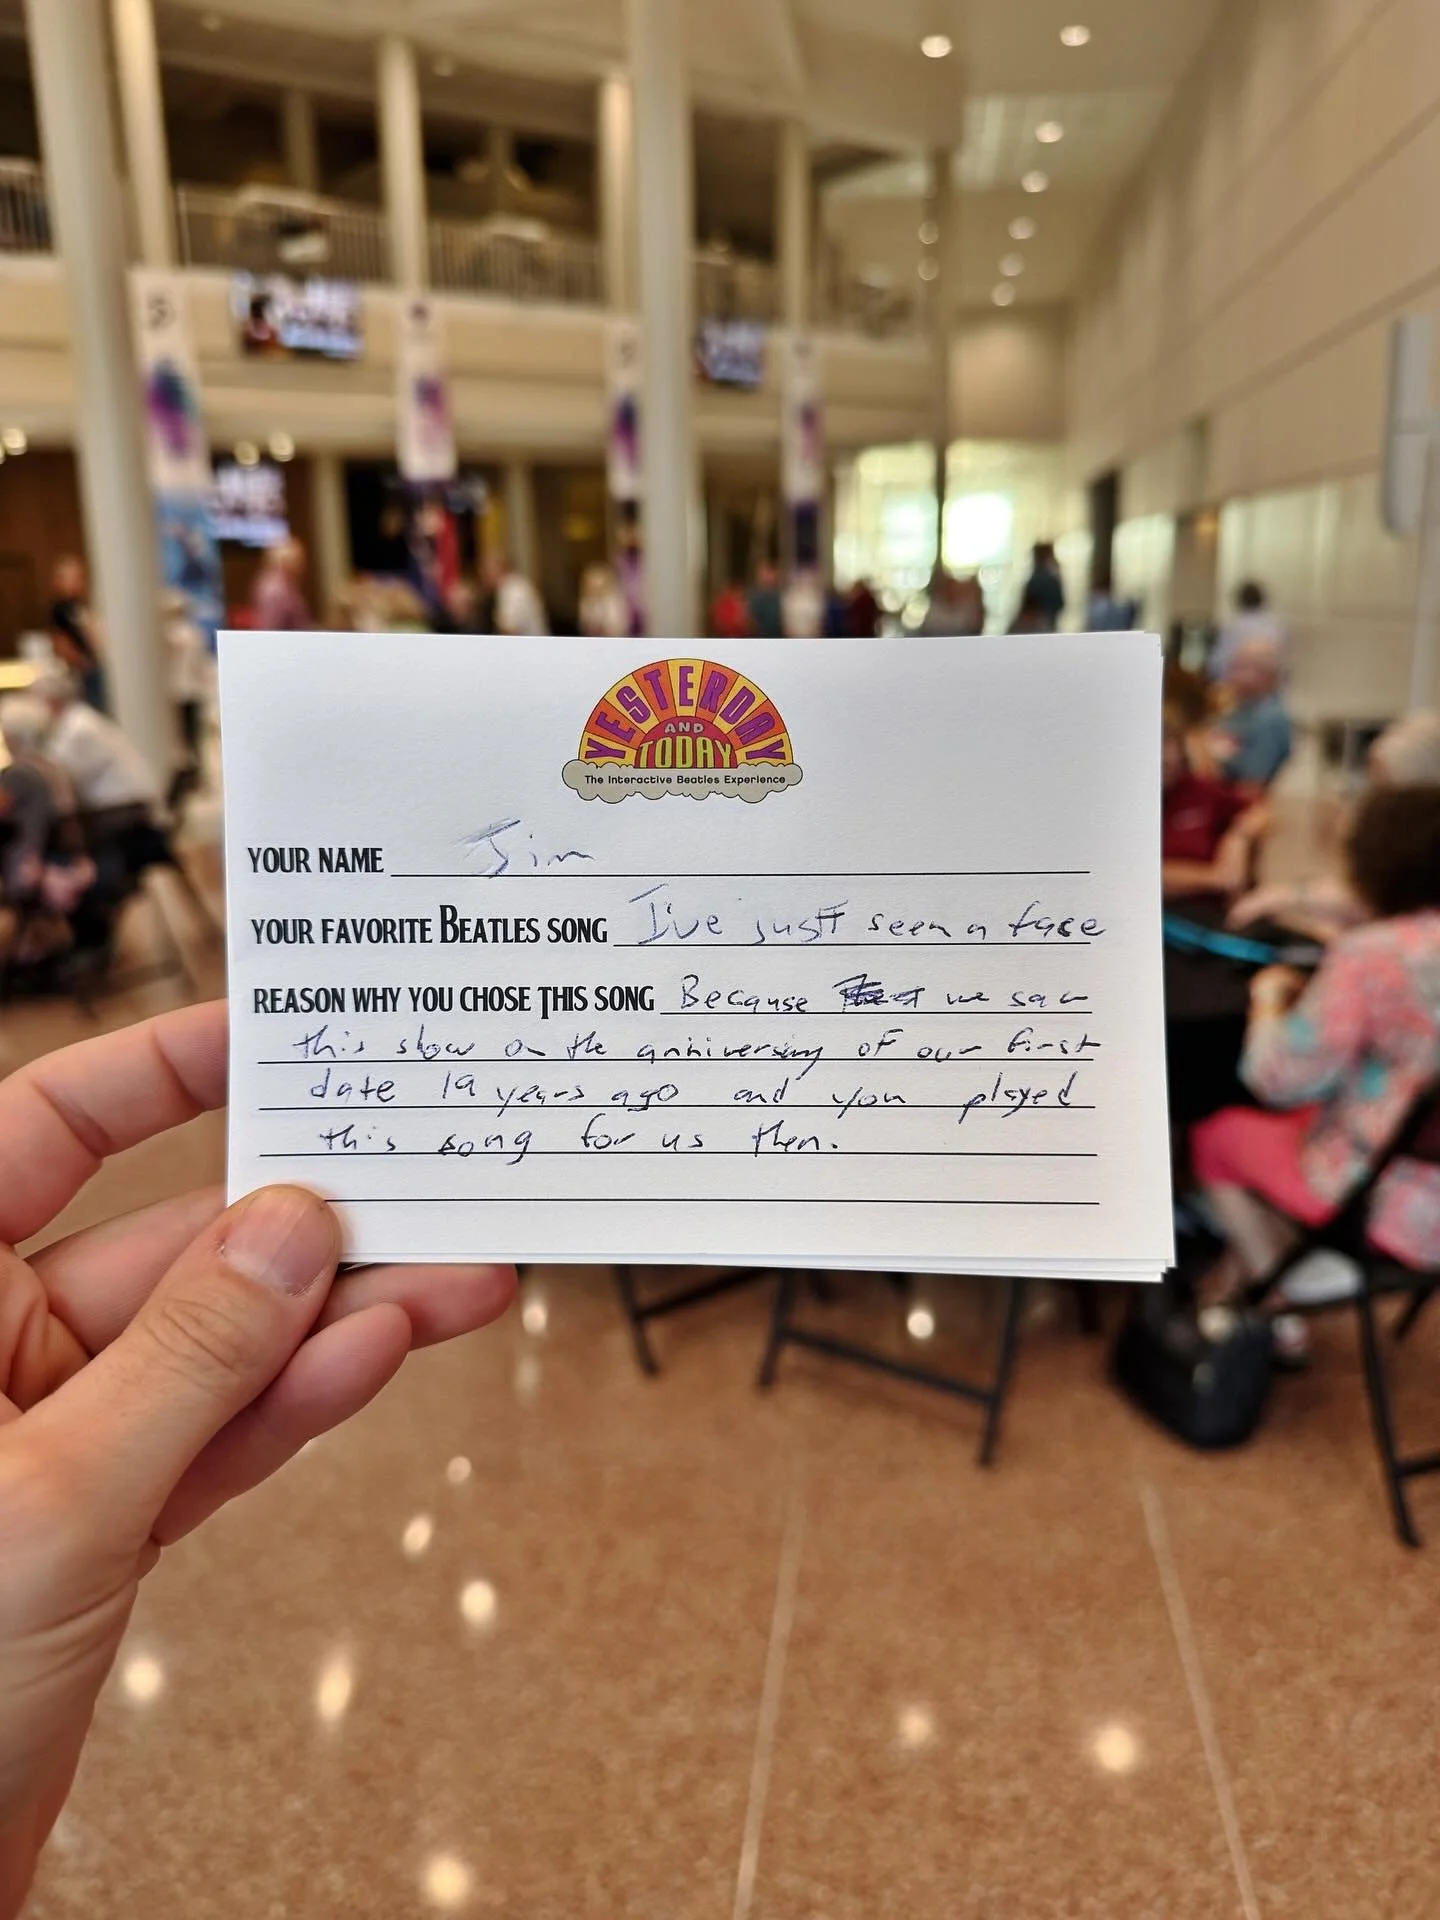 YESTERDAY
AND
TODAY
The Interactive Beatles Experience
YOUR NAME Jim
YOUR FAVORITE BEATLES SONG I've just seen a face
REASON WHY YOU CHOSE THIS SONG Because we saw
this show on the anniversary of our first
date 19 years ago and you played
this song for us then.